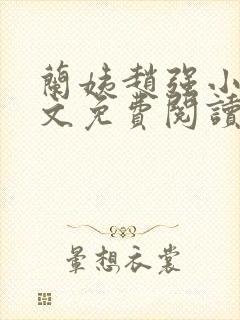 蘭姨趙强小
文免費閱讀
暈想衣裳